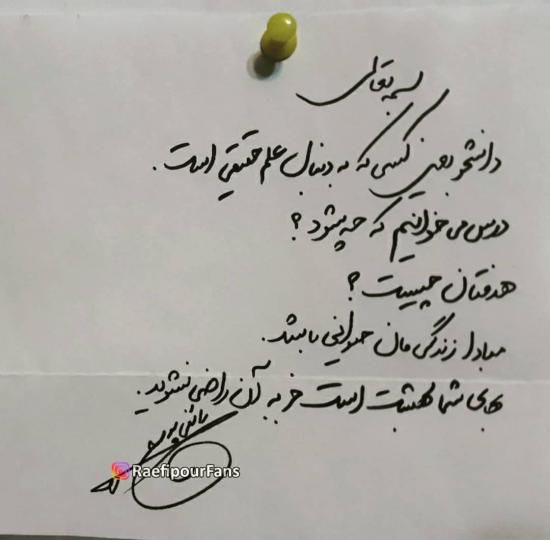 بسمه تعالی
دانشجو یعنی کسی که به دنبال علم حقیقی است.
درس می خوانیم که چه بشود؟
هدفتان چیست؟
مبادا زندگی مان حیوانی باشد.
بهای شما بهشت است جز به آن راضی نشوید.
RaefipourFans